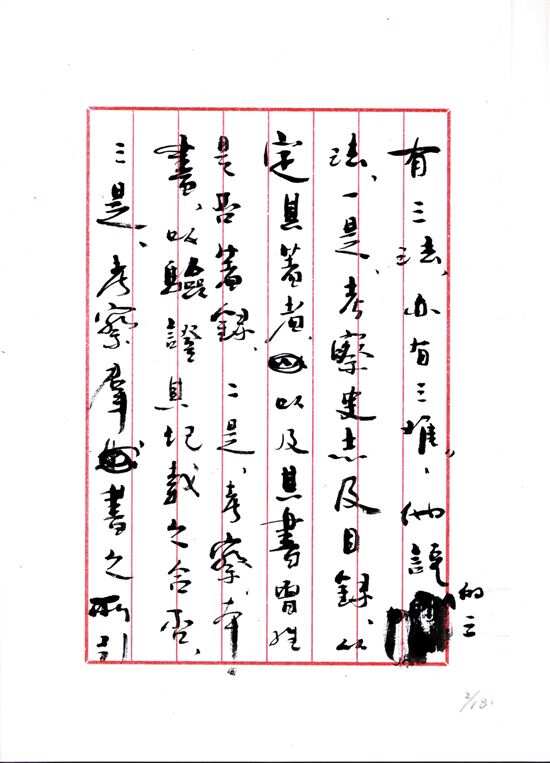 有三法,亦有三難」,他說的三
法,一是、考察史志及目錄,以
定其著者,以及其書曾經
是否著錄。二是、考察本
書,以驗證其記載之合否。
三是、考察群書之所引
2/13.